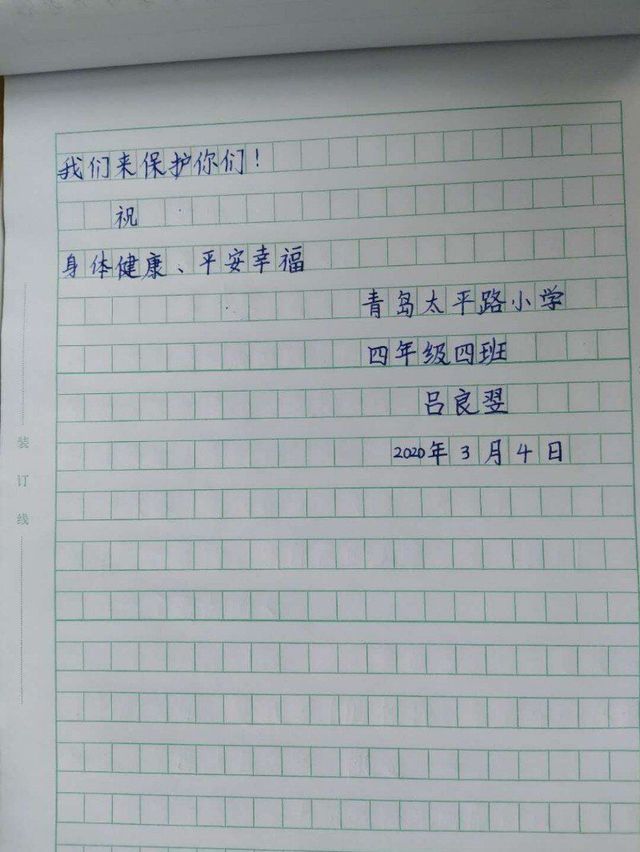 我们来保护你们！
祝
身体健康、平安幸福
青岛太平路小学
四年级四班
吕良翌
2020年3月4日
装订线